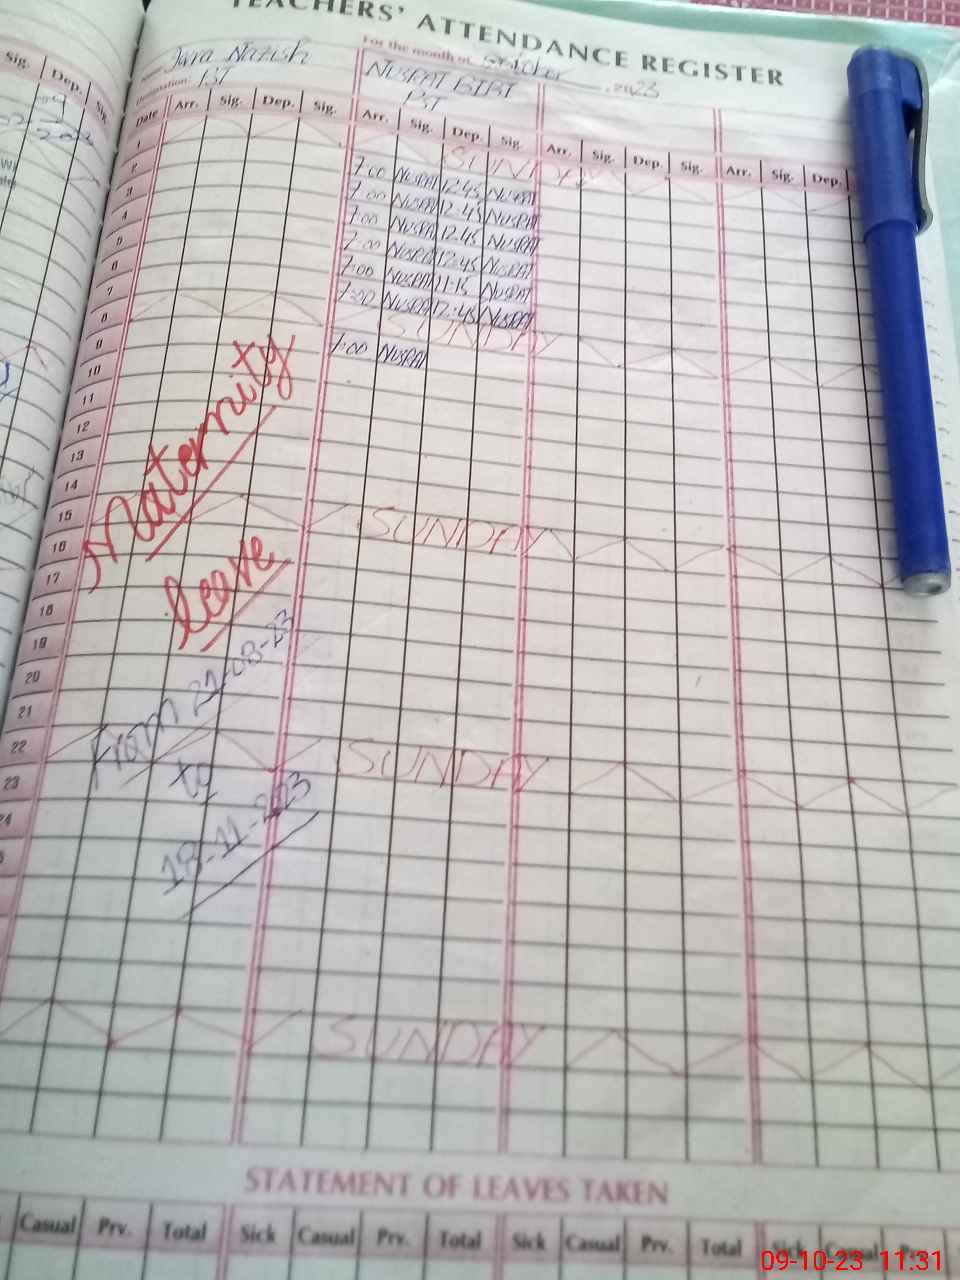 TEACHERS' ATTENDANCE REGISTER
For the month of October 2023
Name Nazish
Designation PST
NUSRAT BIBI
PST
Sig. Dep. Sig.
Date Arr. Sig. Dep. Sig. Arr. Sig. Dep. Sig. Arr. Sig. Dep. Sig. Arr. Sig. Dep.
1 SUNDAY
2 7:00 NUSRAT 12:45 NUSRAT
3 7:00 NUSRAT 12:45 NUSRAT
4 7:00 NUSRAT 12:45 NUSRAT
5 7:00 NUSRAT 12:45 NUSRAT
6 7:00 NUSRAT 11:15 NUSRAT
7 7:00 NUSRAT 12:45 NUSRAT
8 SUNDAY
9 7:00 NUSRAT
10
11
12
13
14
15 SUNDAY
16
17
18
19
20
21
22 SUNDAY
23
24
SUNDAY
Maternity
leave
From 21-08-23
to
18-11-2023
STATEMENT OF LEAVES TAKEN
Casual Prv. Total Sick Casual Prv. Total Sick Casual Prv. Total Sick Casual Prv.
09-10-23 11:31